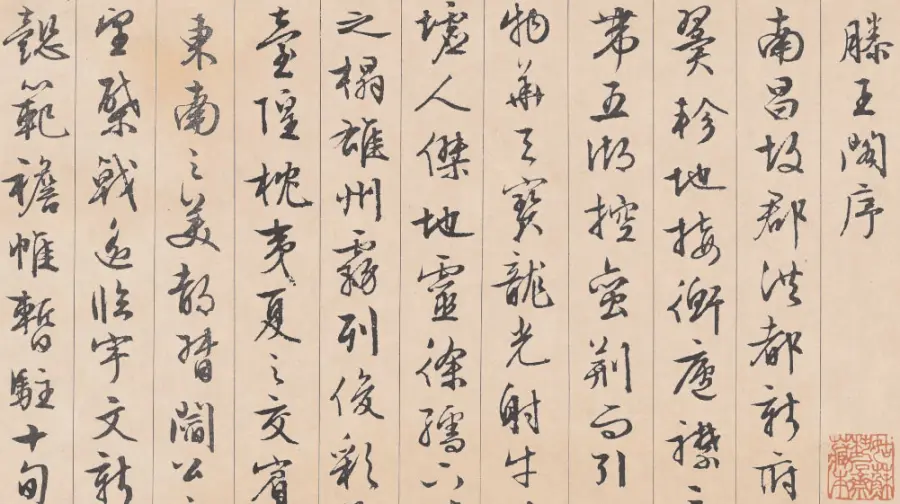 滕王閣序
南昌故郡洪都新府
翼軫地接衡廬襟三
帶五湖控蠻荊而引
物華天寶龍光射牛
墟人傑地靈徐孺下
之榻雄州霧列俊彩
臺隍枕夷夏之交賓
東南之美都督閻公
望棨戟遙臨宇文新
懿範襜帷暫駐十旬